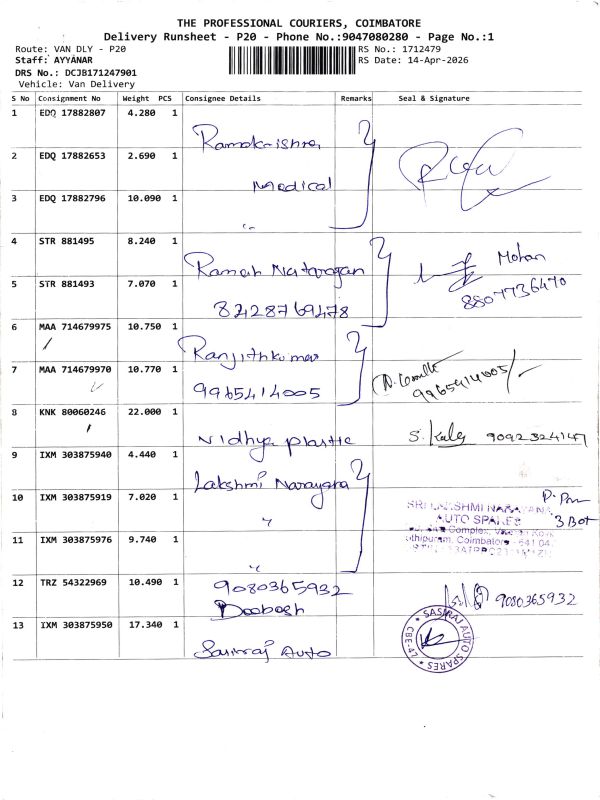 THE PROFESSIONAL COURIERS, COIMBATORE
Delivery Runsheet - P20 - Phone No.:9047080280 - Page No.:1
Route: VAN DLY - P20
RS No.: 1712479
Staff: AYYANAR
RS Date: 14-Apr-2026
DRS No.: DCJB171247901
Vehicle: Van Delivery
S No Consignment No Weight PCS Consignee Details Remarks Seal & Signature
1 EDQ 17882807 4.280 1 Ramakrishna
2 EDQ 17882653 2.690 1 Medical
3 EDQ 17882796 10.090 1 "
4 STR 881495 8.240 1 Ramesh Natarajan Mohan
5 STR 881493 7.070 1 8428769478 8807736470
6 MAA 714679975 10.750 1 Ranjithkumar
7 MAA 714679970 10.770 1 9965414005 9965414005
8 KNK 80060246 22.000 1 Vidhya plastic 9092324147
9 IXM 303875940 4.440 1 Lakshmi Narayana
10 IXM 303875919 7.020 1 " SRI LAKSHMI NARAYANA
AUTO SPARES 3 Box
11 IXM 303875976 9.740 1 " Coimbatore - 641 047
12 TRZ 54322969 10.490 1 9080365932 9080365932
13 IXM 303875950 17.340 1 Sasiraj Auto
SASIRAJ AUTO SPARES
CBE-47